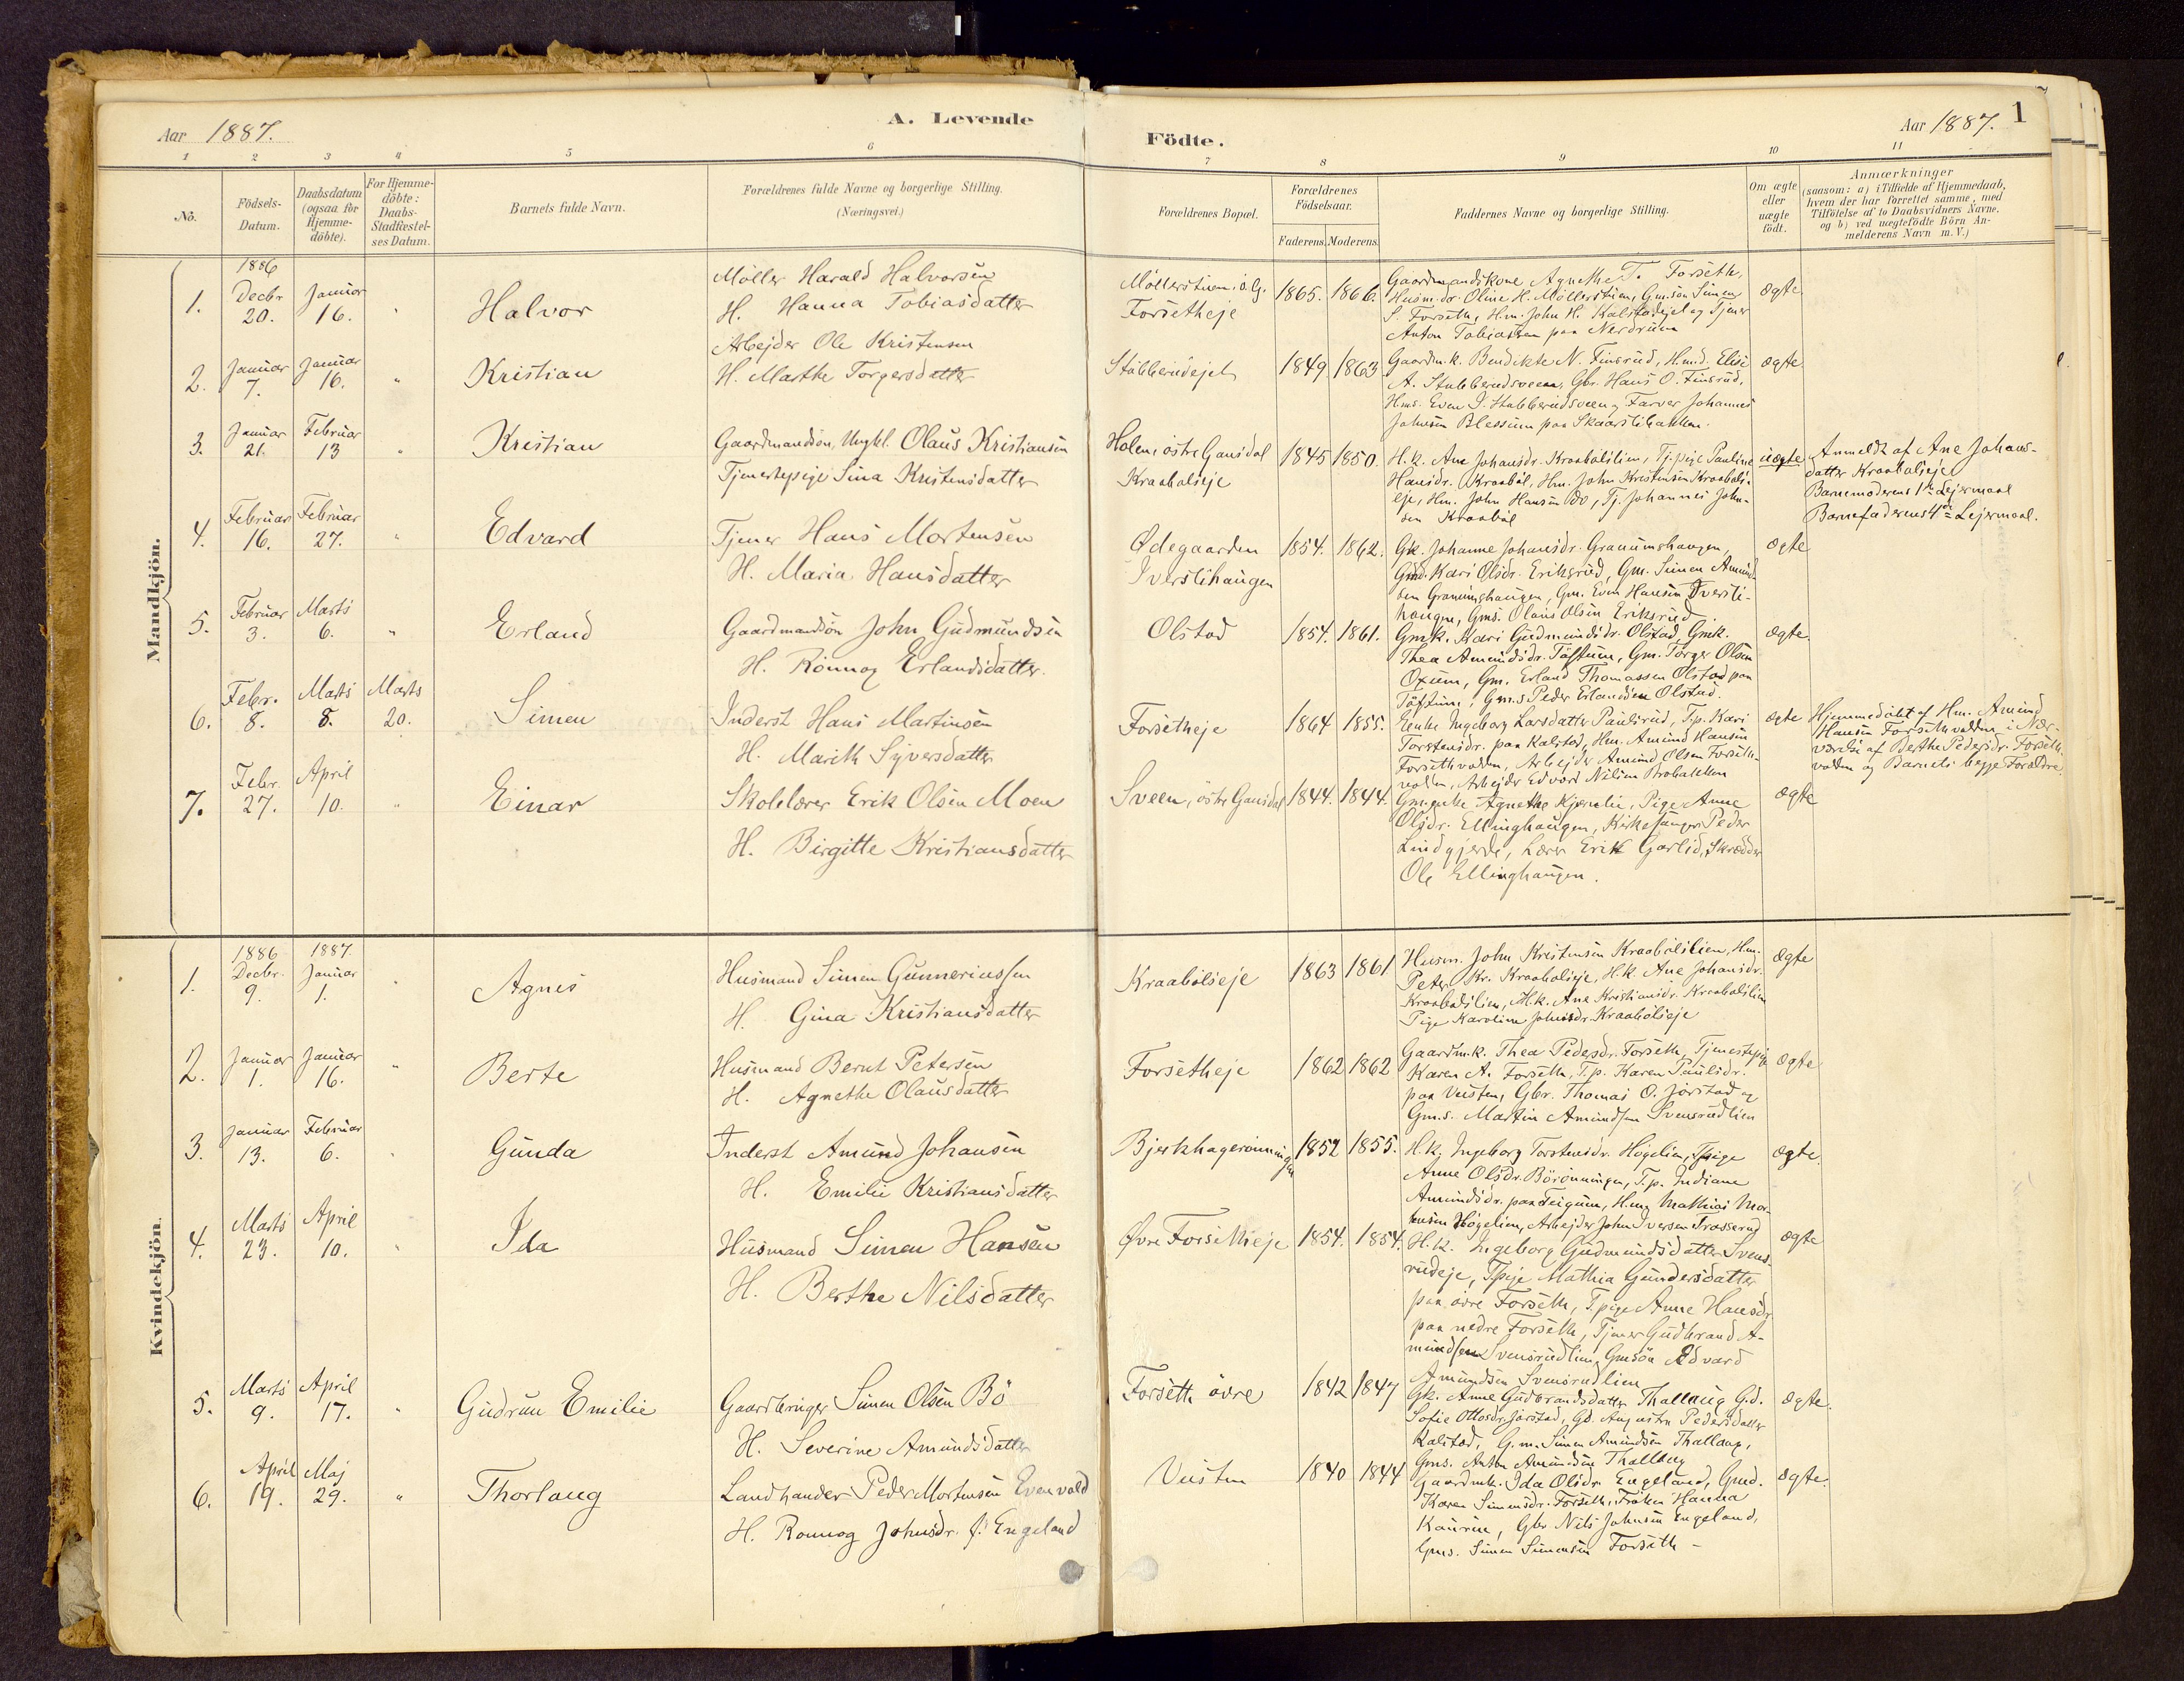 Aar 1887.
A. Levende
Födte.
Aar 1887. 1
1 2 3 4 5 6 7 8 9 10 11
No.
Födsels-Datum.
Daabsdatum (ogsaa for Hjemme-döbte).
For Hjemme-döbte: Daabs-Stadfæstel-ses Datum.
Barnets fulde Navn.
Forældrenes fulde Navne og borgerlige Stilling.
(Næringsvei.)
Forældrenes Bopæl.
Forældrenes Födselsaar.
Faderens. Moderens.
Faddernes Navne og borgerlige Stilling.
Om ægte eller uægte födt.
Anmærkninger
(saasom: a) i Tilfælde af Hjemmedaab,
hvem der har forrettet samme, med
Tilföielse af to Daabsvidners Navne.
og b) ved uægtefödte Börn An-
melderens Navn m. V.)
Mandkjön.
1886
1. Decbr 20. Januar 16. " Halvor
Möller Harald Halvorsen
H. Hanna Tobiasdatter
Möllerstuen, ö. G.
Forsetheje
1865. 1866.
Gaardmandskone Agnethe T. Forseth,
Husm. dr. Oline H. Möllerstuen, Gm.sön Simen
S. Forseth, Hm. John H. Kalstadejet og Tjener
Anton Tobiassen paa Nerdrum
ægte
2. Januar 7. Januar 16. " Kristian
Arbejder Ole Kristensen
H. Marthe Torgersdatter
Stubberudejet
1849 1863
Gaardm.k. Bendikte N. Finsrud, Hm.d. Elise
A. Stubberudsveen, Gbr. Hans O. Finsrud,
Hms. Even J. Stubberudsveen, Farver Johannes
Johnsen Blessum paa Skaarslibakken.
ægte
3. Januar 21. Februar 13 " Kristian
Gaardmandsön, Ungkl. Olaus Kristiansen
Tjenestepige Sina Kristensdatter
Holen, östre Gausdal
Kraabölseje
1845 1850.
H.k. Ane Johansdr. Kraabölslien, Tj.pige Pauline
Hansdr. Kraaböl, Hm. John Kristensen Kraaböls-
eje, Hm. John Hansen do, Tj. Johannes John-
sen Kraaböl
uægte
Anmeldt af Ane Johans-
datter Kraabölseje
Barnemoderens 1ste Lejermaal
Barnefaderens 4de Lejermaal.
4. Februar 16. Februar 27. " Edvard
Tjener Hans Mortensen
H. Maria Hansdatter
Ødegaarden
Iverslihaugen
1854. 1862.
Gk. Johanne Johansdr. Granumshaugen,
Gmd. Kari Olsdr. Eriksrud, Gm. Simen Amund-
sen Granumshaugen, Gm. Even Hansen Iversli-
haugen, Gms. Olaus Olsen Eriksrud.
ægte
5. Februar 3. Marts 6. " Erland
Gaardmandsön John Gudmundsen
H. Rönnog Erlandsdatter.
Olstad
1854. 1861.
Gmk. Kari Gudmundsdr. Olstad, Gmk.
Thea Amundsdr. Töftum, Gm. Torger Olsen
Oxum, Gm. Erland Thomassen Olstad paa
Töftum, Gm.s Peder Erlandsen Olstad.
ægte.
6. Febr. 8. Marts 8. Marts 20. Simen
Inderst Hans Martinsen
H. Marith Syversdatter
Forsetheje
1864 1855.
Enke Ingeborg Larsdatter Paulsrud, T.p. Kari
Torstensdr. paa Kalstad, Hm. Amund Hansen
Forsethvolden, Arbejder Amund Olsen Forseth-
volden, Arbejder Edvard Nilsen Brobakken
ægte
Hjemmedöbt af Hm. Amund
Hansen Forsethvolden i Nær-
værelse af Berthe Pedersdr. Forseth-
volden og Barnets begge Forældre
7. Febr. 27. April 10. " Einar
Skolelærer Erik Olsen Moen
H. Birgitte Kristiansdatter
Sveen, östre Gausdal
1844. 1844.
Gm.enke Agnethe Kjernlie, Pige Anne
Olsdr. Ellinghaugen, Kirkesanger Peder
Lindgjerde, Lærer Erik Garlid, Skrædder
Ole Ellinghaugen.
ægte
Kvindekjön.
1886 1887.
1. Decbr. 9. Januar 1. " Agnes
Husmand Simen Gunneriussen
H. Gina Kristiansdatter
Kraabölseje
1863 1861
Husm. John Kristensen Kraabölslien, Hm.
Peter Kr. Kraabölseje, H.k. Ane Johansdr.
Kraabölslien, H.k. Ane Kristiansdr. Kraabölslien
Pige Karoline Johnsdr. Kraabölseje
Ægte
2. Januar 1. Januar 16. " Berte
Husmand Bernt Petersen
H. Agnethe Olausdatter
Forsetheje
1862 1862
Gaardm.k. Thea Pedersdr. Forseth, Tjenestepige
Karen A. Forseth, T.p. Karen Paulsdr.
paa Veisten, Gbr. Thomas O. Jörstad og
Gm.s. Martin Amundsen Svensrudlien
Ægte
3. Januar 13. Februar 6. " Gunda
Inderst Amund Johansen
H. Emilie Kristiansdatter
Bjerkhagerönningen
1852 1855.
H.k. Ingeborg Torstensdr. Högelien, Tpige
Anne Olsdr. Börönningen, T.p. Indiane
Amundsdr. paa Feigum, H.m. Mathias Mor-
tensen Högelien, Arbejder John Iversen Frasserud
Ægte.
4. Marts 23. April 10. " Ida
Husmand Simen Hansen
H. Berthe Nilsdatter
Øvre Forsetheje
1854. 1854.
H.k. Ingeborg Gudmundsdatter Svens-
rudeje, Tpige Mathia Gundersdatter
paa övre Forseth, T.pige Anne Hansdr.
paa nedre Forseth, Tjener Gudbrand A-
mundsen Svensrudlien, Gmsön Edvard
Amundsen Svensrudlien
ægte
5. Marts 9. April 17. " Gudrun Emilie
Gaardbruger Simen Olsen Bö
H. Severine Amundsdatter
Forseth övre
1842 1847
Gk. Anne Gudbrandsdatter Thallaug G.d.
Sofie Ottosdr. Jörstad, Gd. Augusta Pedersdatter
Kalstad, G.m. Simen Amundsen Thallaug,
Gms. Anton Amundsen Thallaug
ægte.
6. April 19. Maj 29. " Thorlaug
Landhandler Peder Mortensen Evenvold
H. Ronnog Johnsdr. f. Engeland
Veisten
1840 1844
Gaardmk. Ida Olsdr. Engeland, Gmd.
Karen Simensdr. Forseth, Fröken Hanna
Kaurin, Gbr. Nils Johnsen Engeland,
Gms. Simen Simensen Forseth -
ægte.